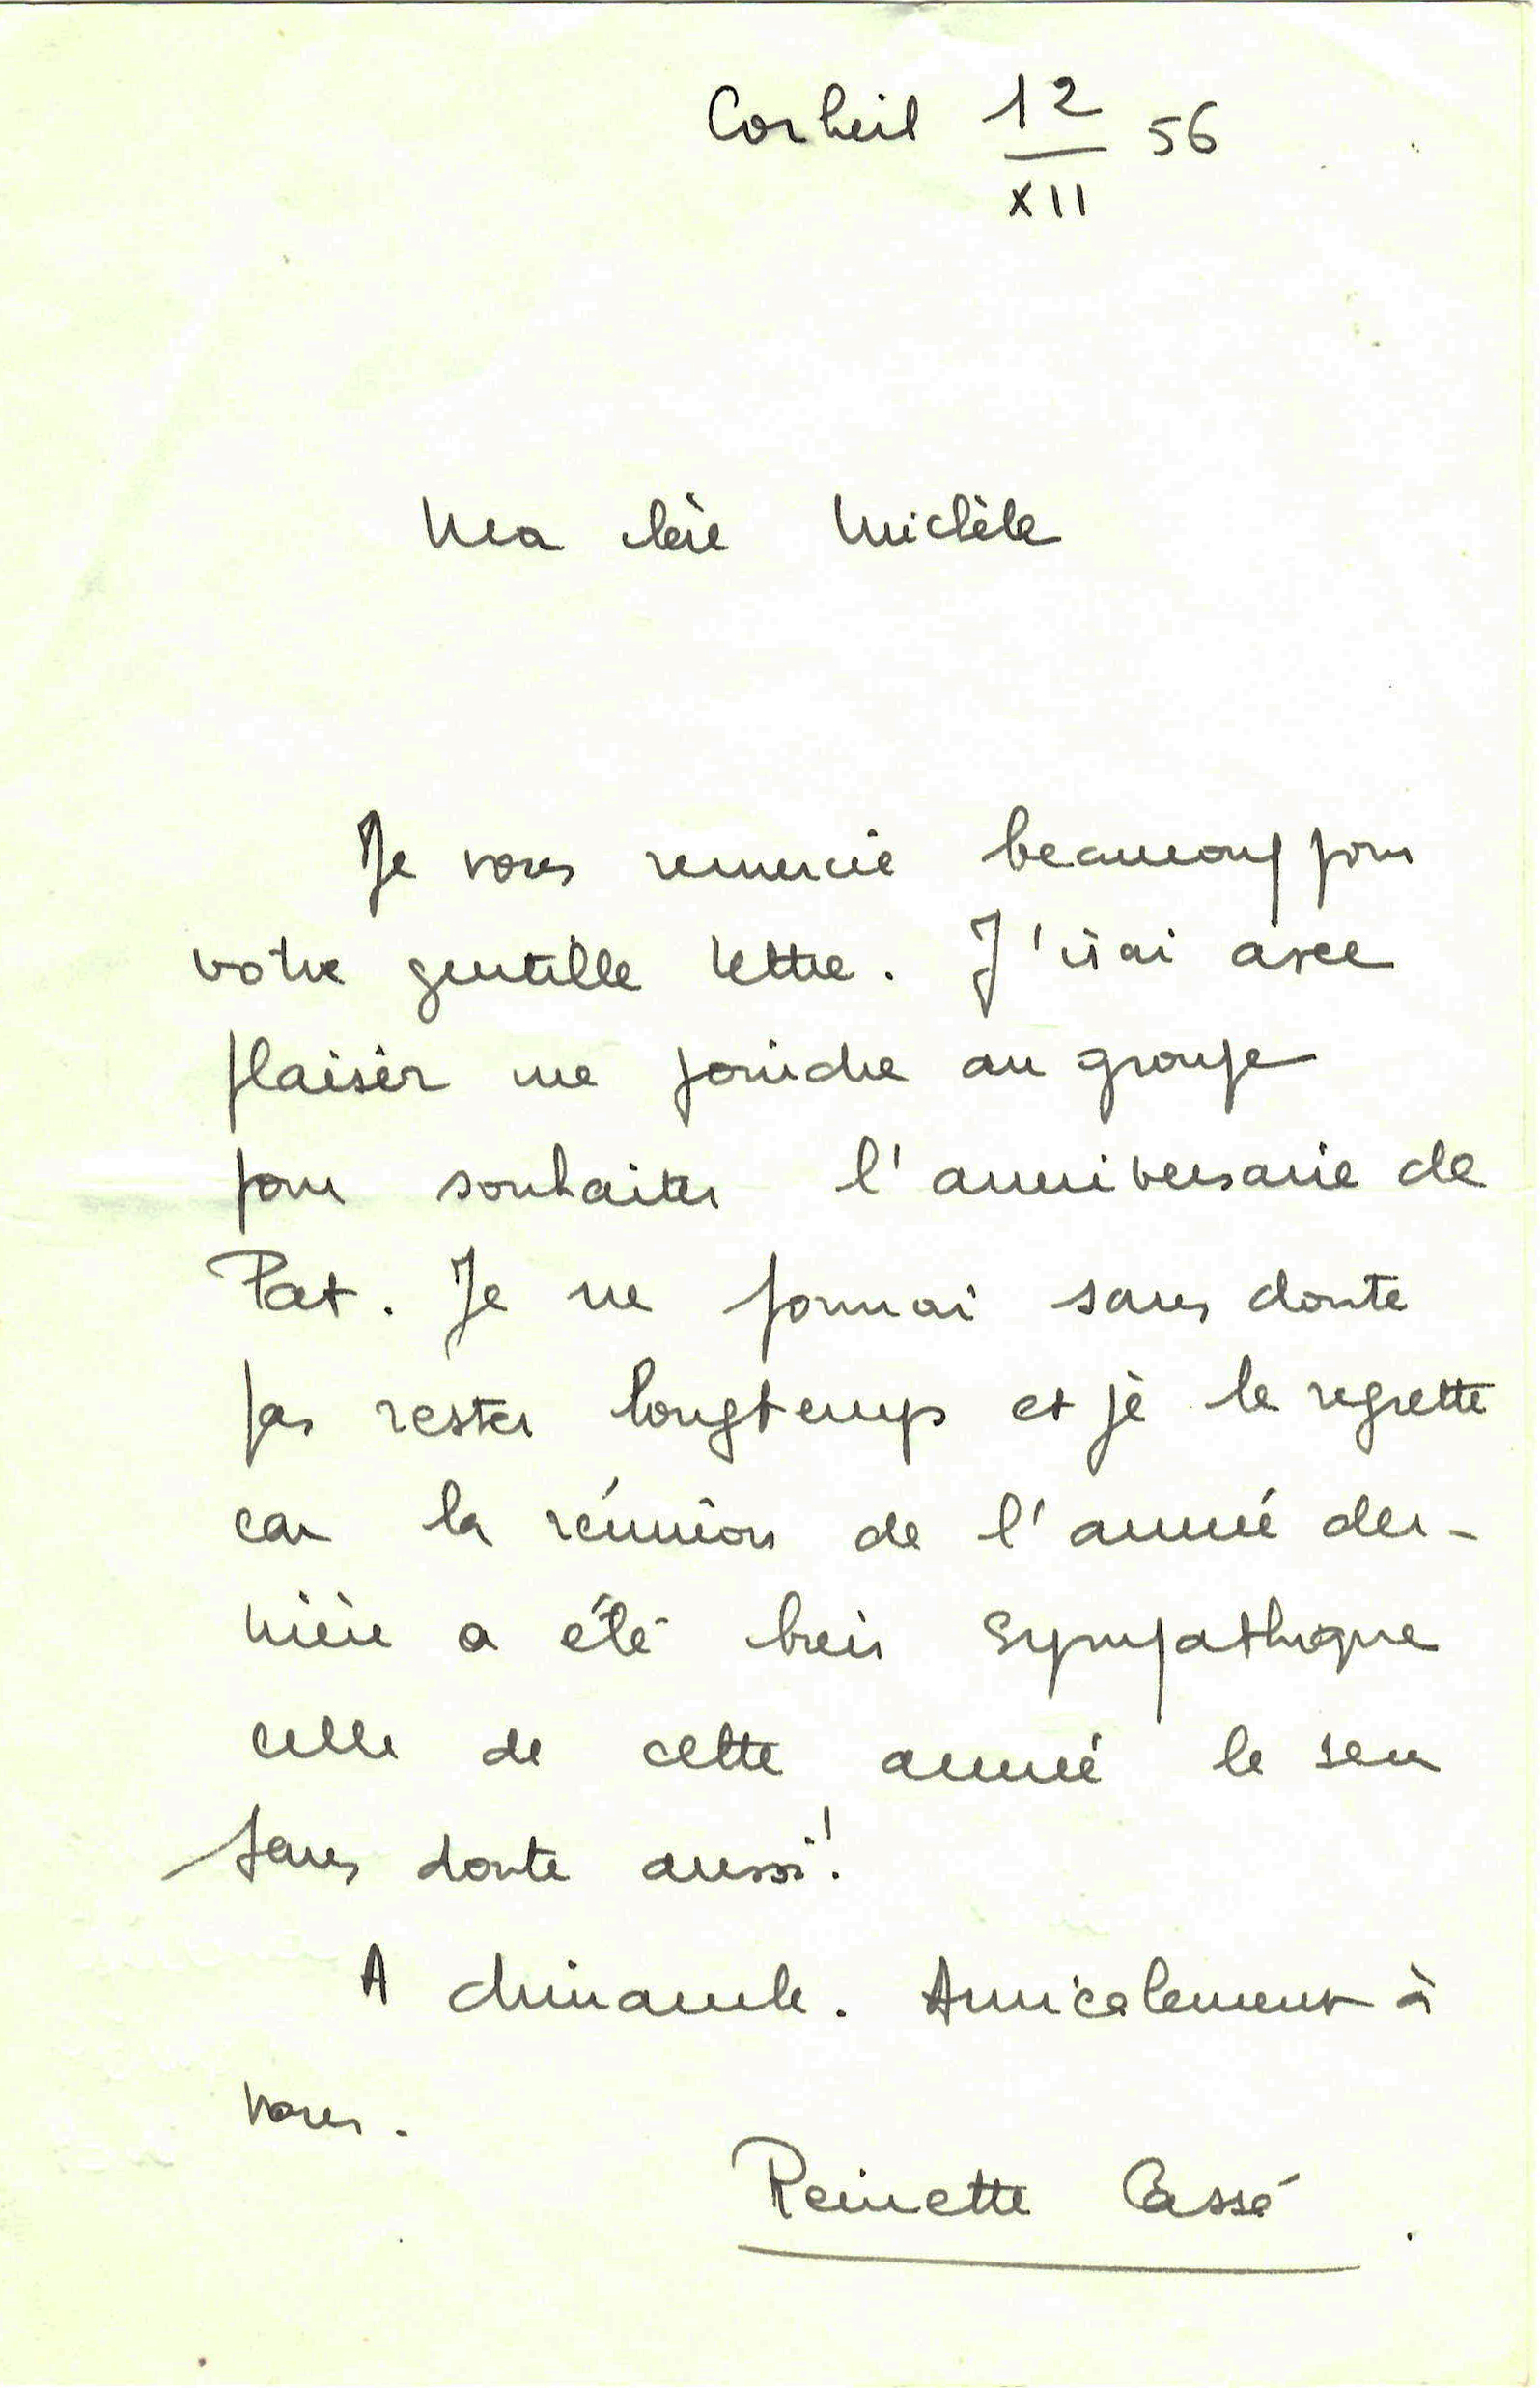 Corbeil 12/XII 56
Ma chère Michèle
Je vous remercie beaucoup pour
votre gentille lettre. J'irai avec
plaisir me joindre au groupe
pour souhaiter l'anniversaire de
Pat. Je ne pourrai sans doute
pas rester longtemps et je le regrette
car la réunion de l'année der-
nière a été bien sympathique
celle de cette année le sera
sans doute aussi!
A dimanche. Amicalement à
vous.
Reinette Cassé